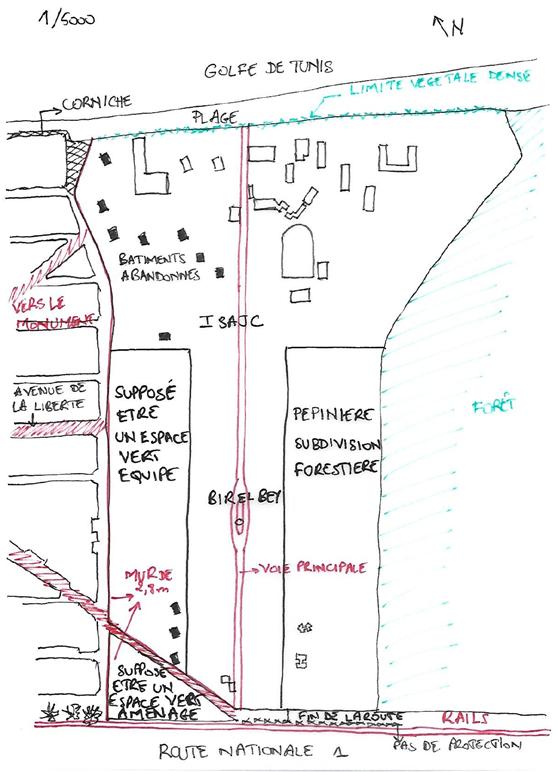 1/5000
N
GOLFE DE TUNIS
LIMITE VEGETALE DENSE
CORNICHE
PLAGE
BATIMENTS
ABANDONNÉS
VERS LE
MONUMENT
ISAJC
AVENUE DE
LA LIBERTE
SUPPOSÉ
ETRE
UN ESPACE
VERT
EQUIPE
PEPINIERE
SUBDIVISION
FORESTIERE
FORÊT
BIR EL BEY
VOIE PRINCIPALE
MUR DE
2,8m
SUPPOSÉ
ETRE UN
ESPACE VERT
AMENAGE
FIN DE LA ROUTE
RAILS
PAS DE PROTECTION
ROUTE NATIONALE 1